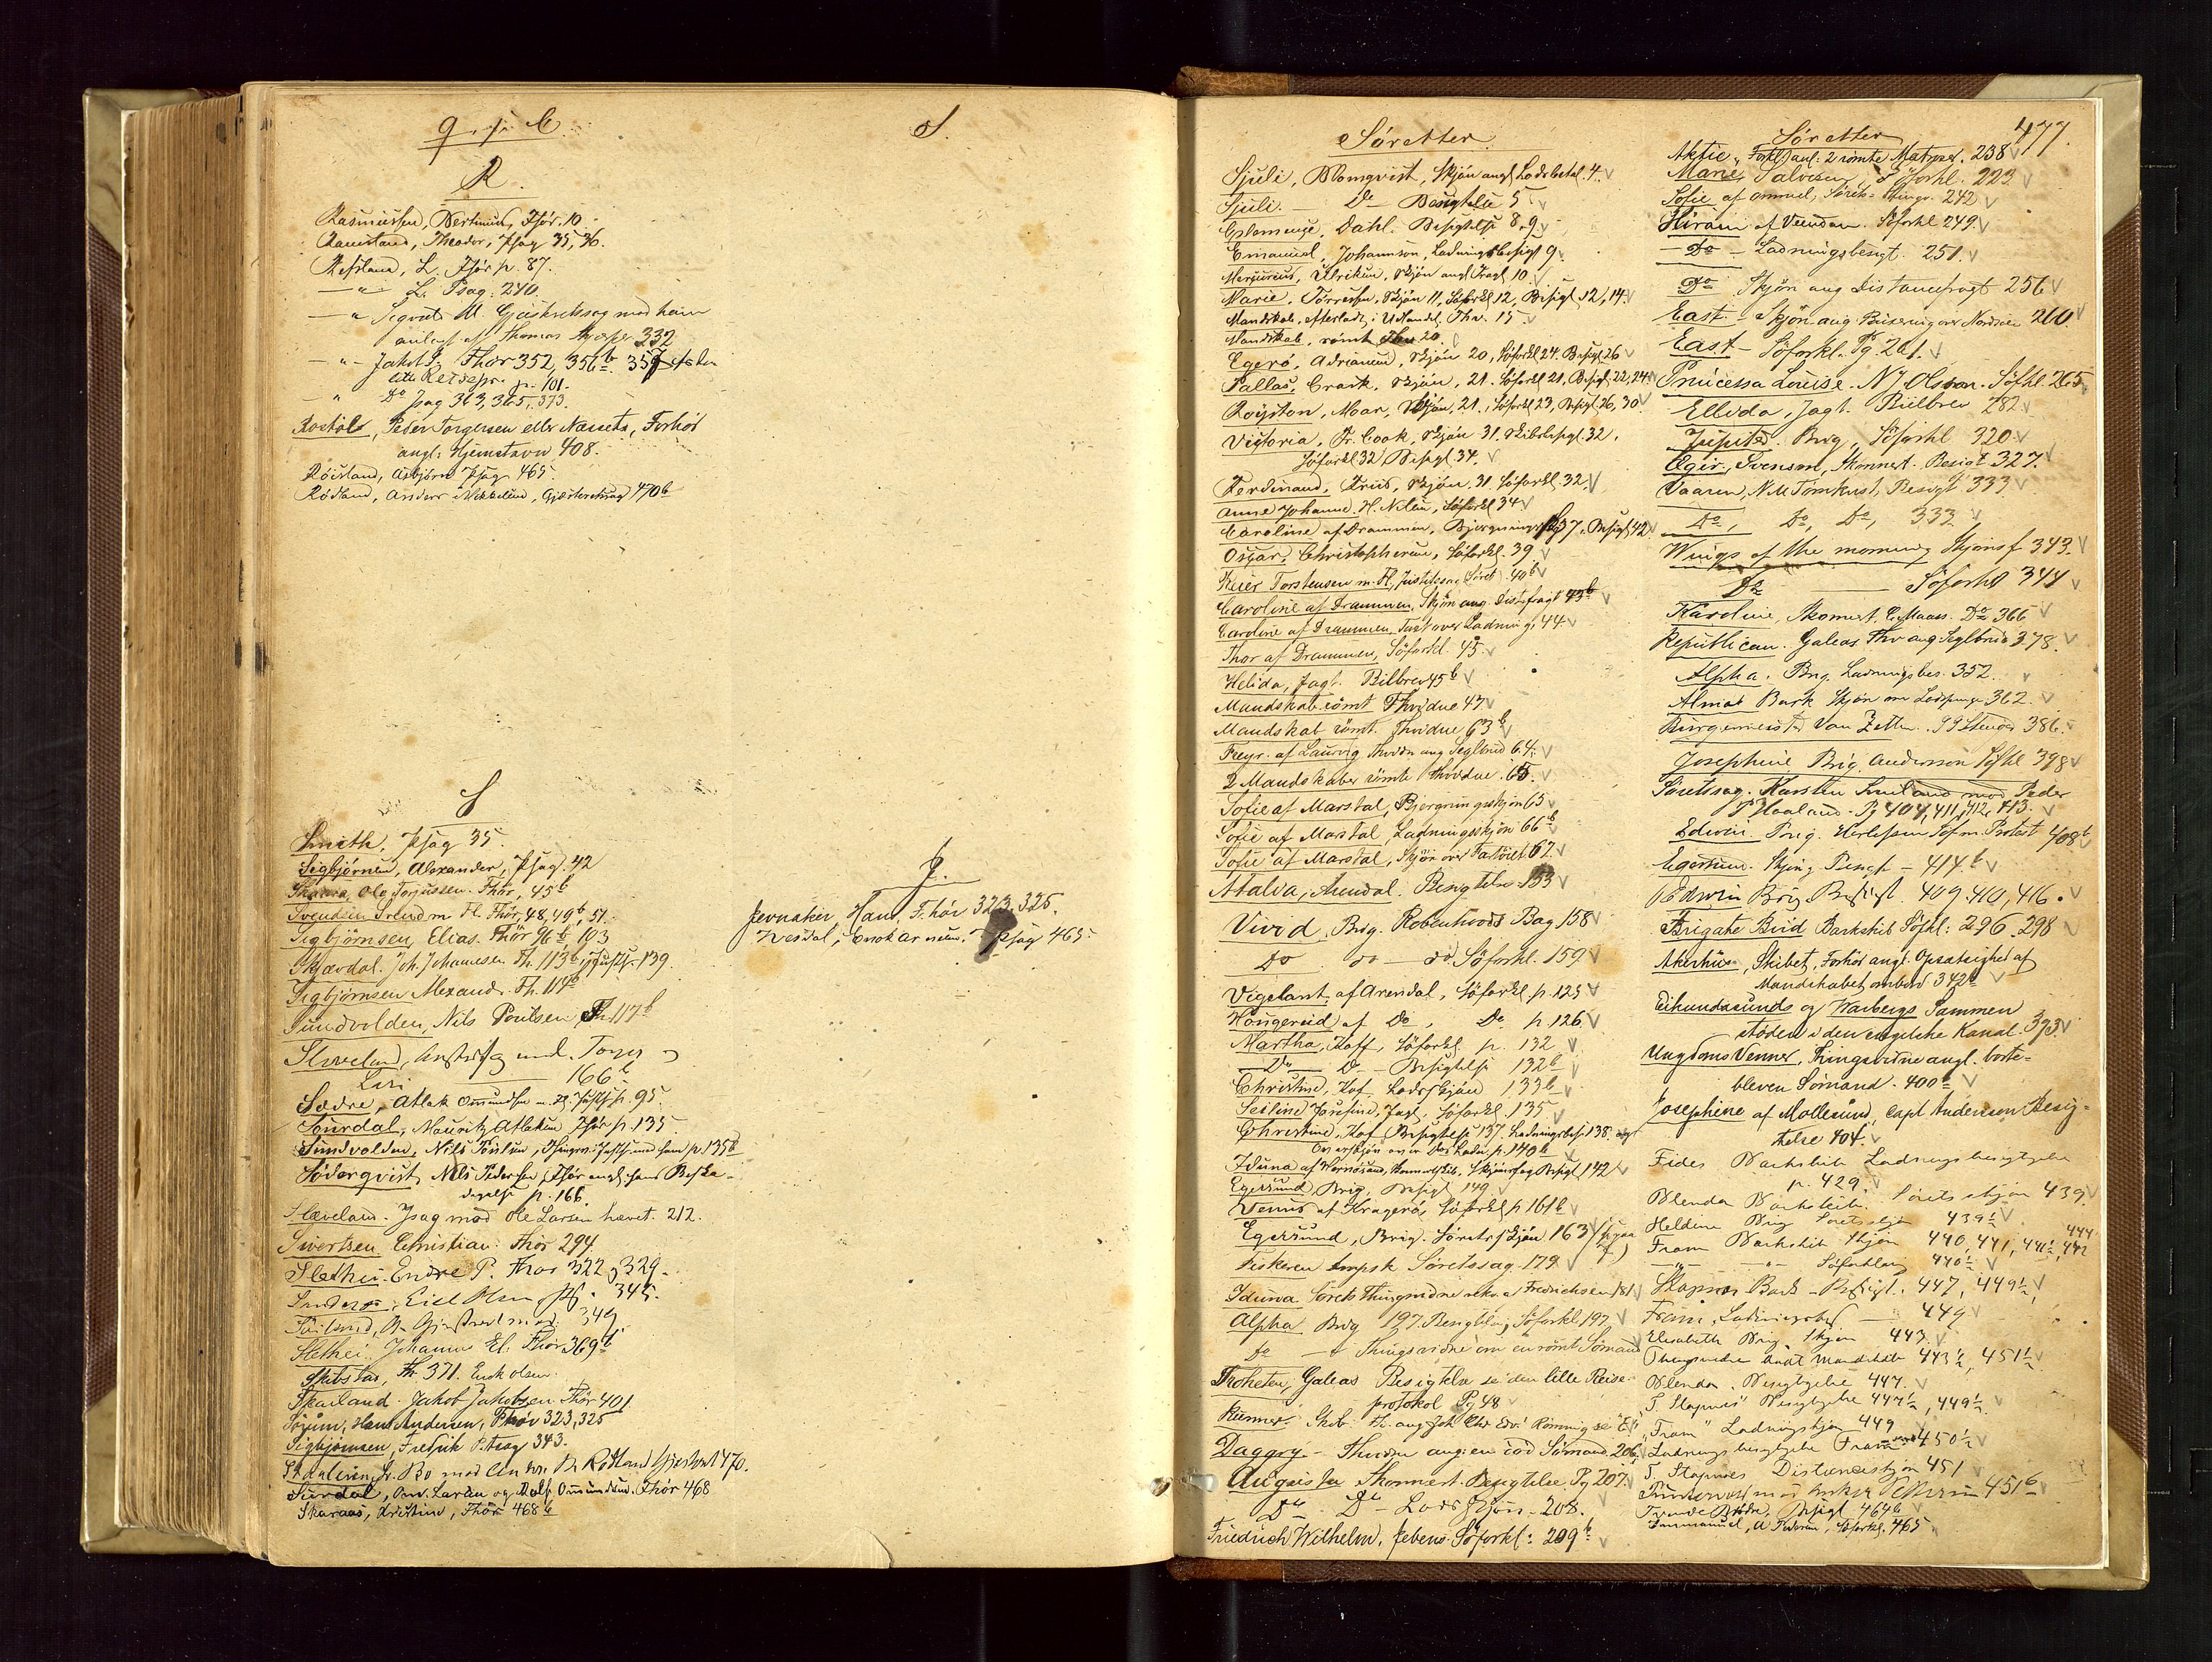 R.
Rasmussen, Bertinus, Fhör. 10.
Raustand, Theodor, Psag 35, 36.
Refsland, L. Fhör p. 87.
— " — L. Psag. 240.
— " Sigvald M. Gjæsteretssag mod ham
anlagt af Thomas 332
— " — Jakob L. Fhör 352, 356b. 357
lille Reisepr. p. 101.
— " Do Psag 363, 365, 373.
Rostøl, Peder Torgersen eller Næssets, Forhör
angl: Hjemstavn 408.
Röisland, Asbjörn Psag 465.
Rödland, Anders Mikkelsen, Gjæsteretssag 470b
S
Smith, Psag 35.
Sigbjörnsen, Alexander, Psag. 42
Skaara, Ole Torjussen. Fhör, 45b
Svendsen Svend m Fl. Fhör, 48, 49b, 51.
Sigbjörnsen, Elias. Fhör 96b, 103
Skjævdal. Joh. Johannesen Fh. 113b, Justs. 139.
Sigbjörnsen Alexand. Fh. 114b
Sundvolden, Nils Poulsen, Fh 117b
166b
Sædre, Atlak Ommundsen m. Fl. Justs p. 95.
Sourdal, Mauritz Atlaksen Fhör p. 135
Sundvolden, Nils Poulsen, Justs mod ham p. 135b
Söderqvist, Nils Pedersen, Fhör angl. hans Beska-
digelse p. 166
Slæveland. Psag mod Ole Larsen hævet. 212.
Sivertsen Christian. Fhör 294.
Slethei. Endre P. Fhör 322 og 329.
345.
349
Slethei. Johannes El. Fhör 369b
Skibstad, Fh 371. Enok Olsen.
Skailand. Jakob Jakobsen Fhör 401
Sörum, Hans Andersen, Fhör 323, 325
Sigbjörnsen, Fredrik P. tsag 343.
470.
Surdal, Omd. Larsen og Rolf Ommundsen. Fhör 468
Skaraas, Kristine, Fhör 468b
J.
Jernæker, Hans, F. hör 323, 325.
Enok Arnesen. Psag 465.
Söretter.
Sjuli, Blomqvist, Skjön angl Lodsbetal. 4.
Sjuli. — Do — Besigtelse 5
Dahl. Besigtelse 8, 9
Emanuel, Johannson, Ladningsbesigt 9.
Mercurius, Ulriksen, Skjön angl Fragt 10.
Marie, Törresen, Skjön 11, Söforkl 12, Besigt. 12, 14.
Mandskab, efterladt i Udlandet, Thv. 15.
Mandskab, römt Thv 20.
Egerö, Adriansen, Skjön 20, Söforkl 24, Besigt 26
Pallas, Crack, Skjön, 21. Söforkl 21, Besigt, 22, 24
Royston, Moar, Skjön, 21. Söforkl 23, Besigt 26, 30
Victoria, Fr. Cook, Skjön 31. Skibsbesigt. 32.
Söforkl 32, Besigt 34.
Ferdinand, Friis, Skjön. 31. Söforkl 32.
Anne Johanne. H. Nilsen, Söforkl 34
Caroline af Drammen, Bjergningssag 37, Besigt 42
Oscar, Christophersen, Söforkl. 39
Keier Torstensen m. Fl. Justitssag (Söret). 40b
Caroline af Drammen, Skjön ang. Distrfragt 43b
Caroline af Drammen, Taxt over Ladning, 44.
Thor af Drammen, Söforkl. 45.
Helida, Jagt. Bilbrev 45b
Mandskab römt Thvidne 47
Mandskab römt. Thvidne 63b
Freyr. af Laurvig Thvidn ang Seglbrud 64.
2 Mandskaber römte Thvidne. 65.
Sofie af Marstal, Bjergningsskjön 65
Sofie af Marstal, Ladningsskjön 66b
Sofie af Marstal, Skjön over Fartöiet 67
Atalva, Arendal. Besigtelse 153
Vivid. Brig. Robenhoods Bay 158
Do do — do Söforkl. 159
Vigelant af Arendal, Söforkl p. 125
Höugereid af Do, Do p. 126
Martha, Hoff, Söforkl. p. 132
— Do — D — Besigtelse 132b
Christine, Hof. Lodsskjön 133b
Josefine, Jagt, Söforkl. 135
Christine, Hof. Besigtelse 137. Ladningsbes. 138.
Overskjön over Ladn. p. 140b
Iduna af Hernösand, Besigt 142
Egersund, Brig, Besigt 149
Venus af Kragerö, Söforkl p 161b
Egersund, Brig. Söretsskjön 163
Fiskeren Söretssag. 179
Iduna Sörets Thingsvidne rekv. af Fredrichsen 181
Alpha Brig 197. Besigtelse, Söforkl 197
Do — t Thingsvidne om en römt Sömand
Troheten, Galeas Besigtelse se den lille Reise-
protokol Pg 48
Daggry — Thvidn ang: en död Sömand 206
Augusta Skonnert. Besigtelse. Pg 207.
Do — Do — Lodsskjön — 208.
Friedrich Wilhelm. Jebens. Söforkl: 209b
477.
Söretter
Aktie, 2 römte Matroser. 238
Marie, Salvesen, Söforkl. 223
242
Hiram af Veendam. Söforkl 249.
— Do — Ladningsbesigt. 251.
Do Skjön ang Distancefragt 256
East. Skjön ang. Buxering over Nordsöen 260
East — Söforkl. Pg. 261.
Princessa Louise. N J Olsson. Söfkl. 265
Ellida, Jagt. Biilbrev 282
Jupiter. Brig, Söforkl 320
Ægir, Svensen, Skonnert. Besigt 327.
Vaaren, N M Tömkvist, Besigt 333
Do, Do, Do, 333
Wings of the morning Skjönsf 343.
Do — Söforkl 344
Karoline, Skonnert, C. Maass. Do 366
Republican. Galeas Thv ang Seglbrud 378.
Alpha. Brig. Ladningsbes. 352.
Almas Bark Skjön om Lodspenge 362.
Burgermeister Van Zetten. 386.
Josephine Brig. Andersson Söfkl 398
Söretssag. Karsten mod Peder
P Haaland. Pg 404, 411, 412, 413.
Edwin. Brig. Protest 408b
Egersund. 414b
Edwin Brig Besigt. 409. 410, 416.
Frigate Bird Barkskib Söfkl: 296. 298
Akerhus, Skibet, Forhör angl. Opsætsighed af
Mandskabet ombord 342b
Eikundasunds og Warbergs Sammen
stöden i den engelske Kanal. 393
Ungdoms Venner, Thingsvidne angl. borte-
bleven Sömand. 400b
Josephine af Mollösund, Capt Andersson Besig-
telse 404.
Fides Barkskib Ladningsbesigtigelse
p. 429.
Blenda Barkskib. Söretsskjön 439
Heldine Brig Söretsskjön 439½
Fram Barkskib Skjön 440, 441, 441½, 442 444
— " — — " — Söforklaring 440½
Stapnes Bark — Besigt. 447, 449½
Fram, Ladningsbes. — 449
Elisabeth Brig Skjön 443.
Thingsvidne 443½, 451½
Blenda, Besigtigelse 447.
"T. Stapnes" Besigtigelse 444½, 449½
"Fram" Ladningsskjön 449
Ladningsbesigtigelse Fram 450½
T. Stapnes Distanceskjön 451
451b
Trende Brödre, Besigt 464b
Immanuel, A Pedersen, Söforkl. 465